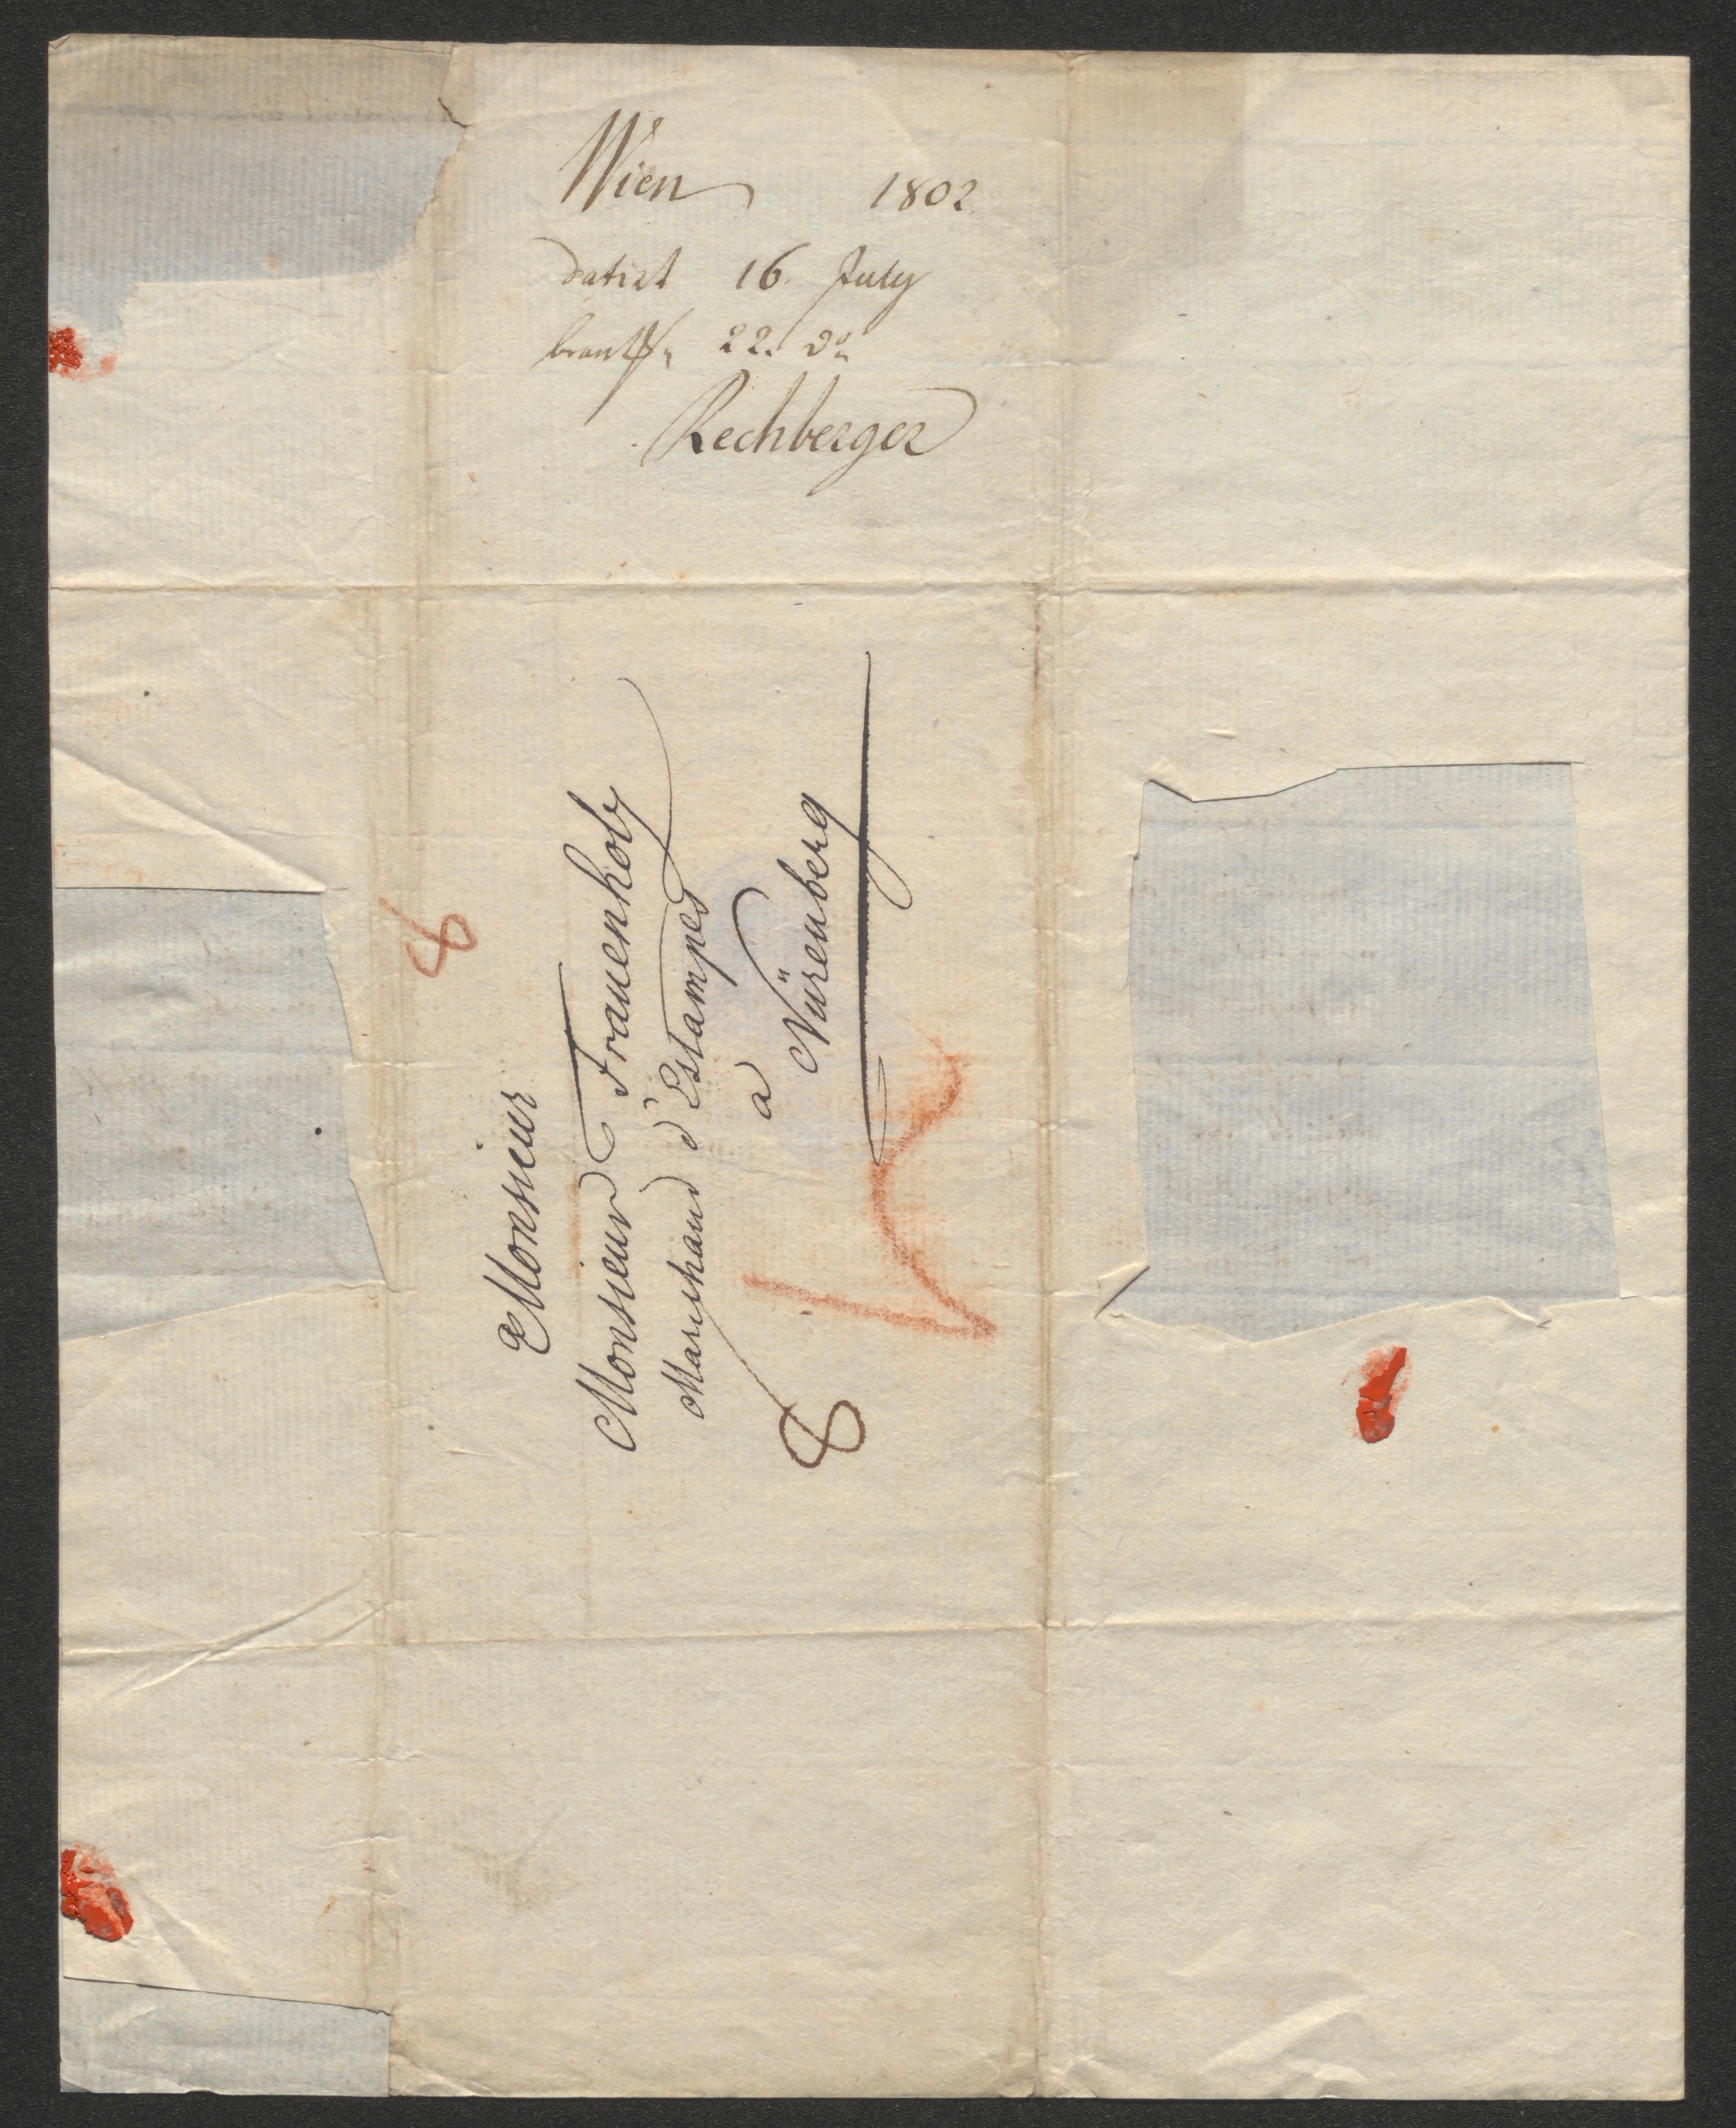 Wien 1802
datirt 16. July
beantw. 22. do
Rechberger
Monsieur
Monsieur Frauenholz
Marchand d'Estampes
a
Nürenberg
8
8